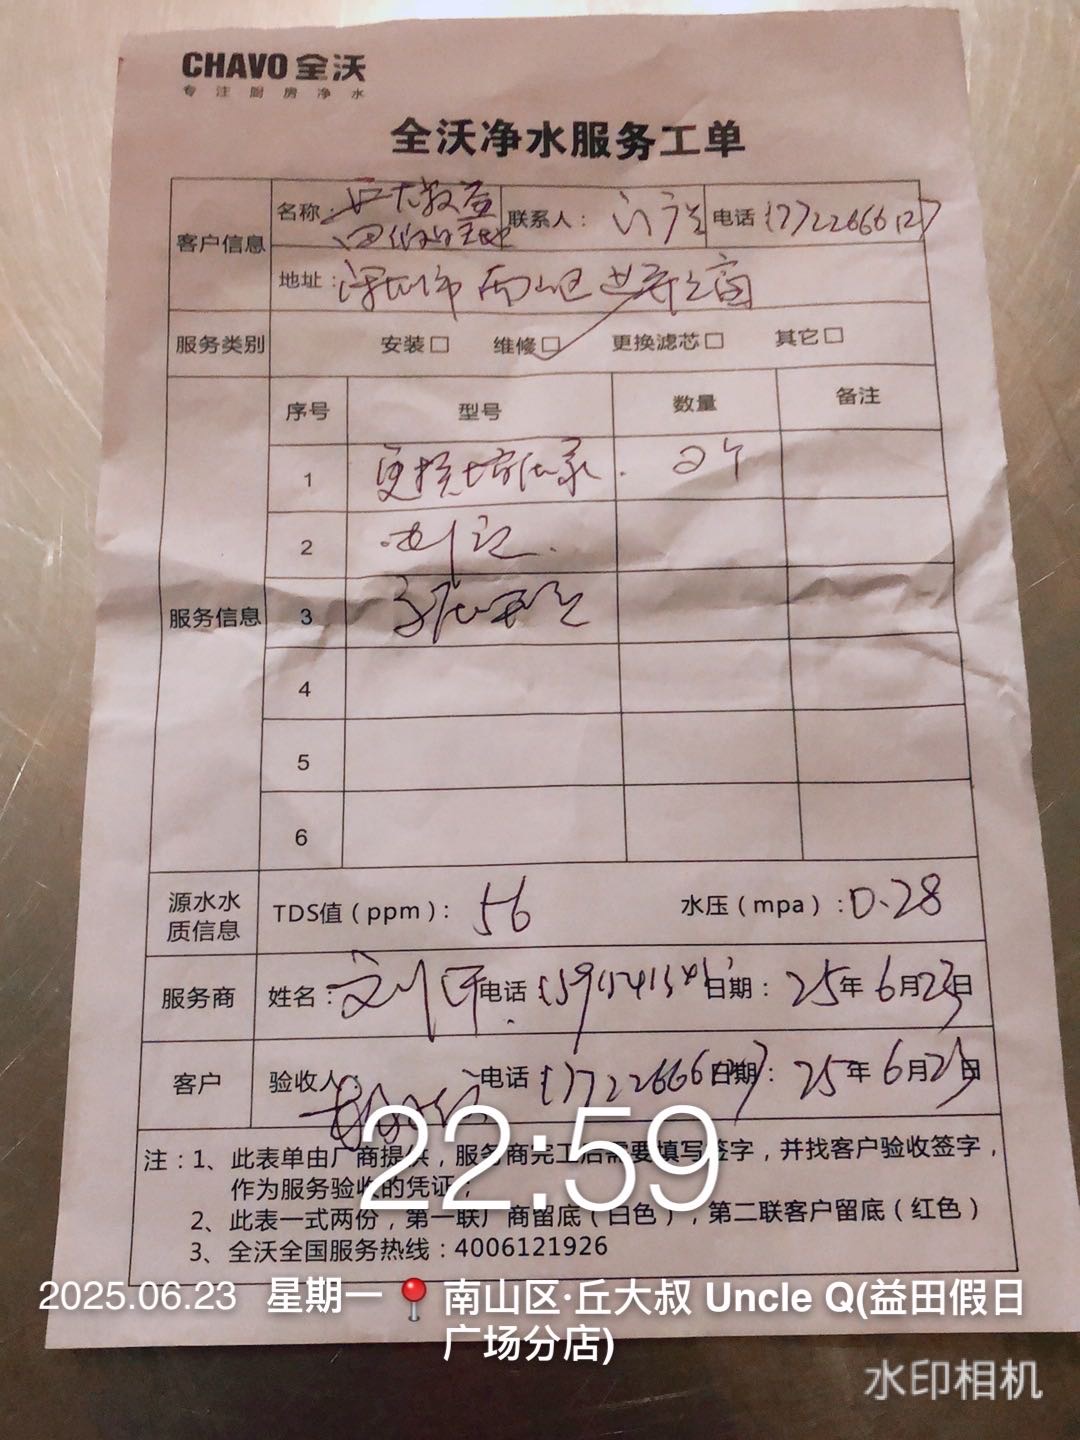 CHAVO 全沃
专注厨房净水
全沃净水服务工单
客户信息
名称：丘大叔益田假日
联系人：
电话 17722666127
地址：深圳市南山区世界之窗
服务类别
安装□ 维修□ 更换滤芯□ 其它□
服务信息
序号 型号 数量 备注
1 更换 2个
2
3
4
5
6
源水水质信息
TDS值（ppm）： 56 水压（mpa）：0.28
服务商 姓名： 电话 日期： 25年6月23日
客户 验收人： 电话 17722666127 日期： 25年6月23日
注：1、此表单由厂商提供，服务商完工后需要填写签字，并找客户验收签字，
作为服务验收的凭证；
2、此表一式两份，第一联厂商留底（白色），第二联客户留底（红色）
3、全沃全国服务热线：4006121926
22:59
2025.06.23 星期一 南山区·丘大叔 Uncle Q(益田假日
广场分店)
水印相机